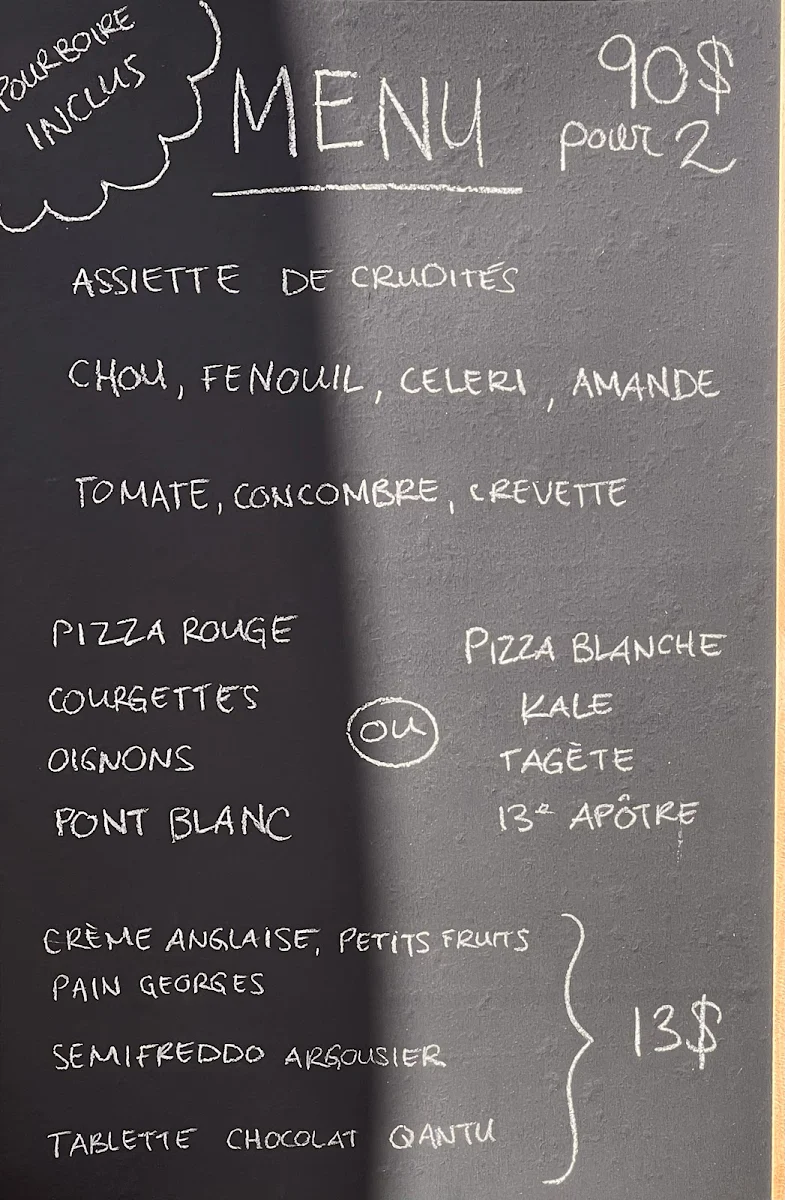 POURBOIRE
INCLUS
MENU
90$
pour 2
ASSIETTE DE CRUDITÉS
CHOU, FENOUIL, CELERI, AMANDE
TOMATE, CONCOMBRE, CREVETTE
PIZZA ROUGE
COURGETTES
OIGNONS
PONT BLANC
OU
PIZZA BLANCHE
KALE
TAGÈTE
13e APÔTRE
CRÈME ANGLAISE, PETITS FRUITS
PAIN GEORGES
SEMIFREDDO ARGOUSIER
TABLETTE CHOCOLAT QANTU
13$